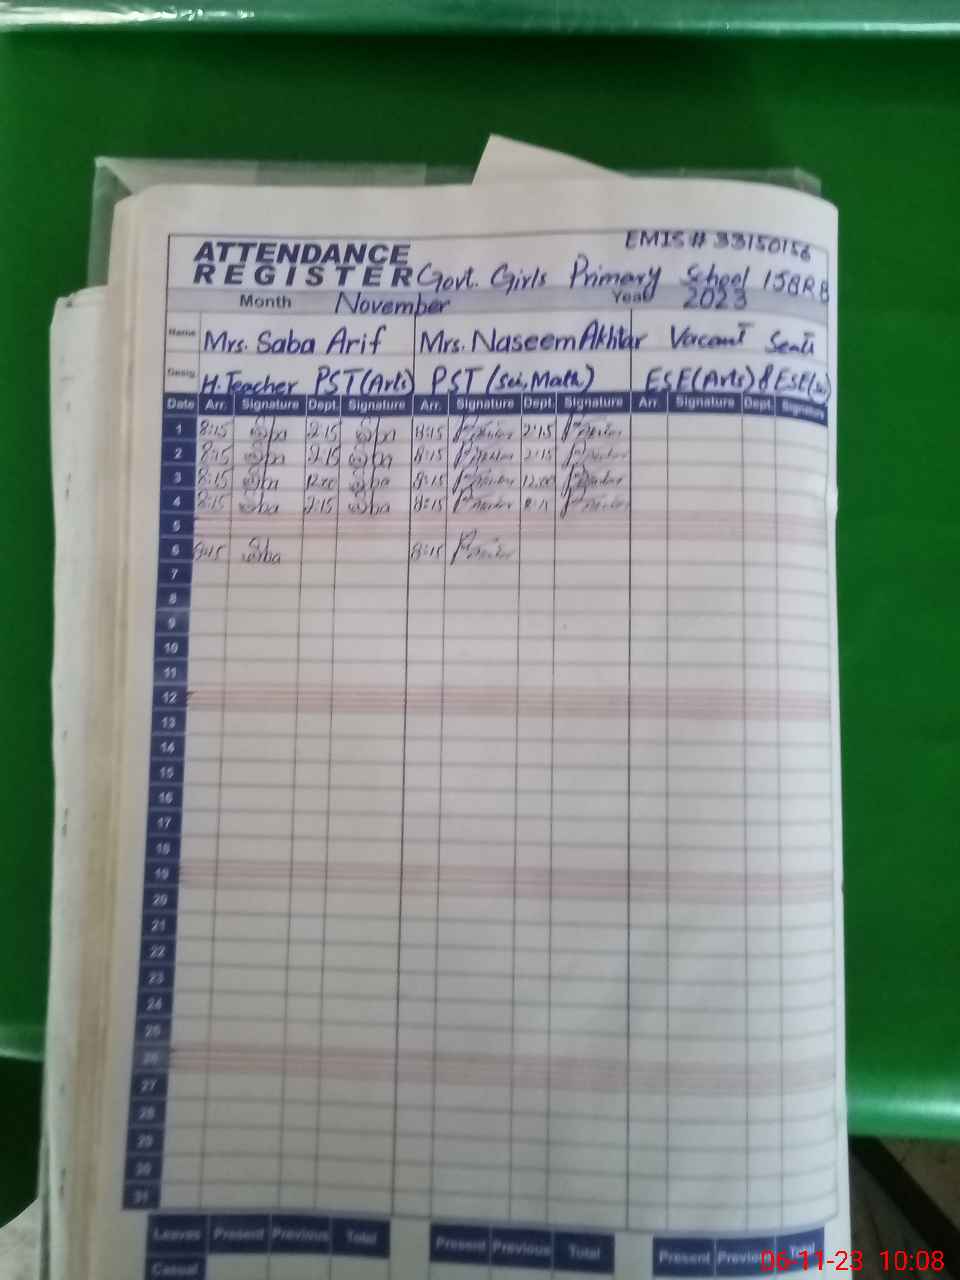 EMIS # 33150156
ATTENDANCE
REGISTER Govt. Girls Primary School 158RB
Month November Year 2023
Name Mrs. Saba Arif Mrs. Naseem Akhtar Vacant Seats
Desig. H.Teacher PST(Arts) PST (Sci, Math) ESE(Arts) & ESE(Sci)
Date Arr. Signature Dept. Signature Arr. Signature Dept. Signature Arr. Signature Dept. Signature
1 8:15 Saba 2:15 Saba 8:15 2:15
2 8:15 Saba 2:15 Saba 8:15 2:15
3 8:15 Saba 12:00 Saba 8:15 12:00
4 8:15 Saba 2:15 Saba 8:15
5
6 8:15 Saba 8:15
7
8
9
10
11
12
13
14
15
16
17
18
19
20
21
22
23
24
25
26
27
28
29
30
31
Leaves Present Previous Total Present Previous Total Present Previous Total
Casual
06-11-23 10:08